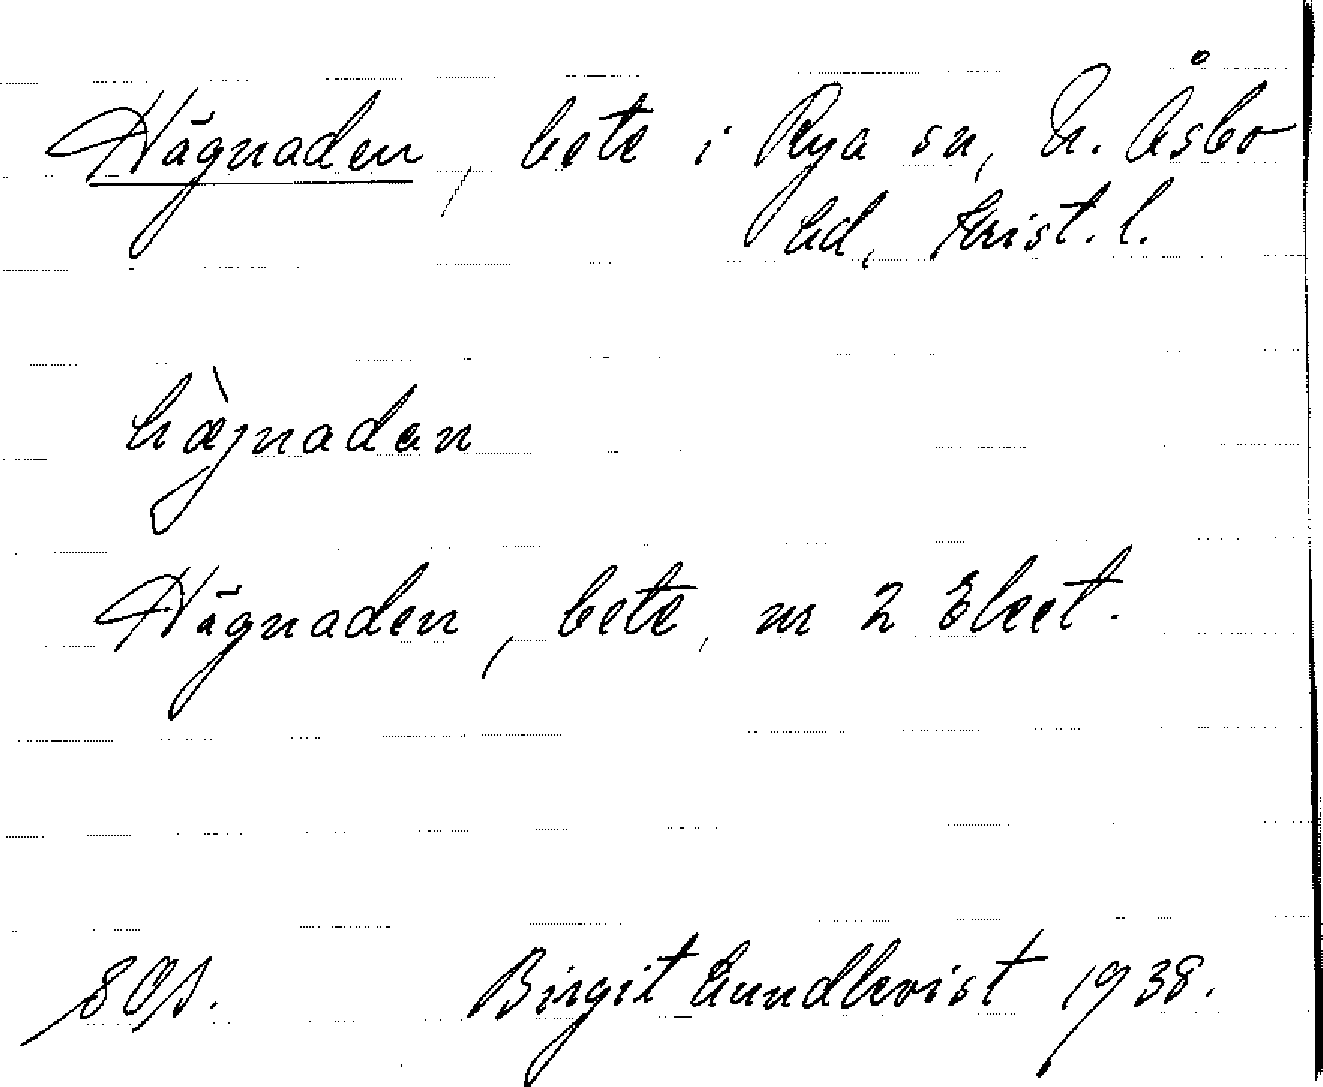 Hägnaden, bete i Rya sn, N. Åsbo
hd, Krist. l.
hæ̀jnadan
Hägnaden, bete, nr 2
Birgit Lundkvist 1938.